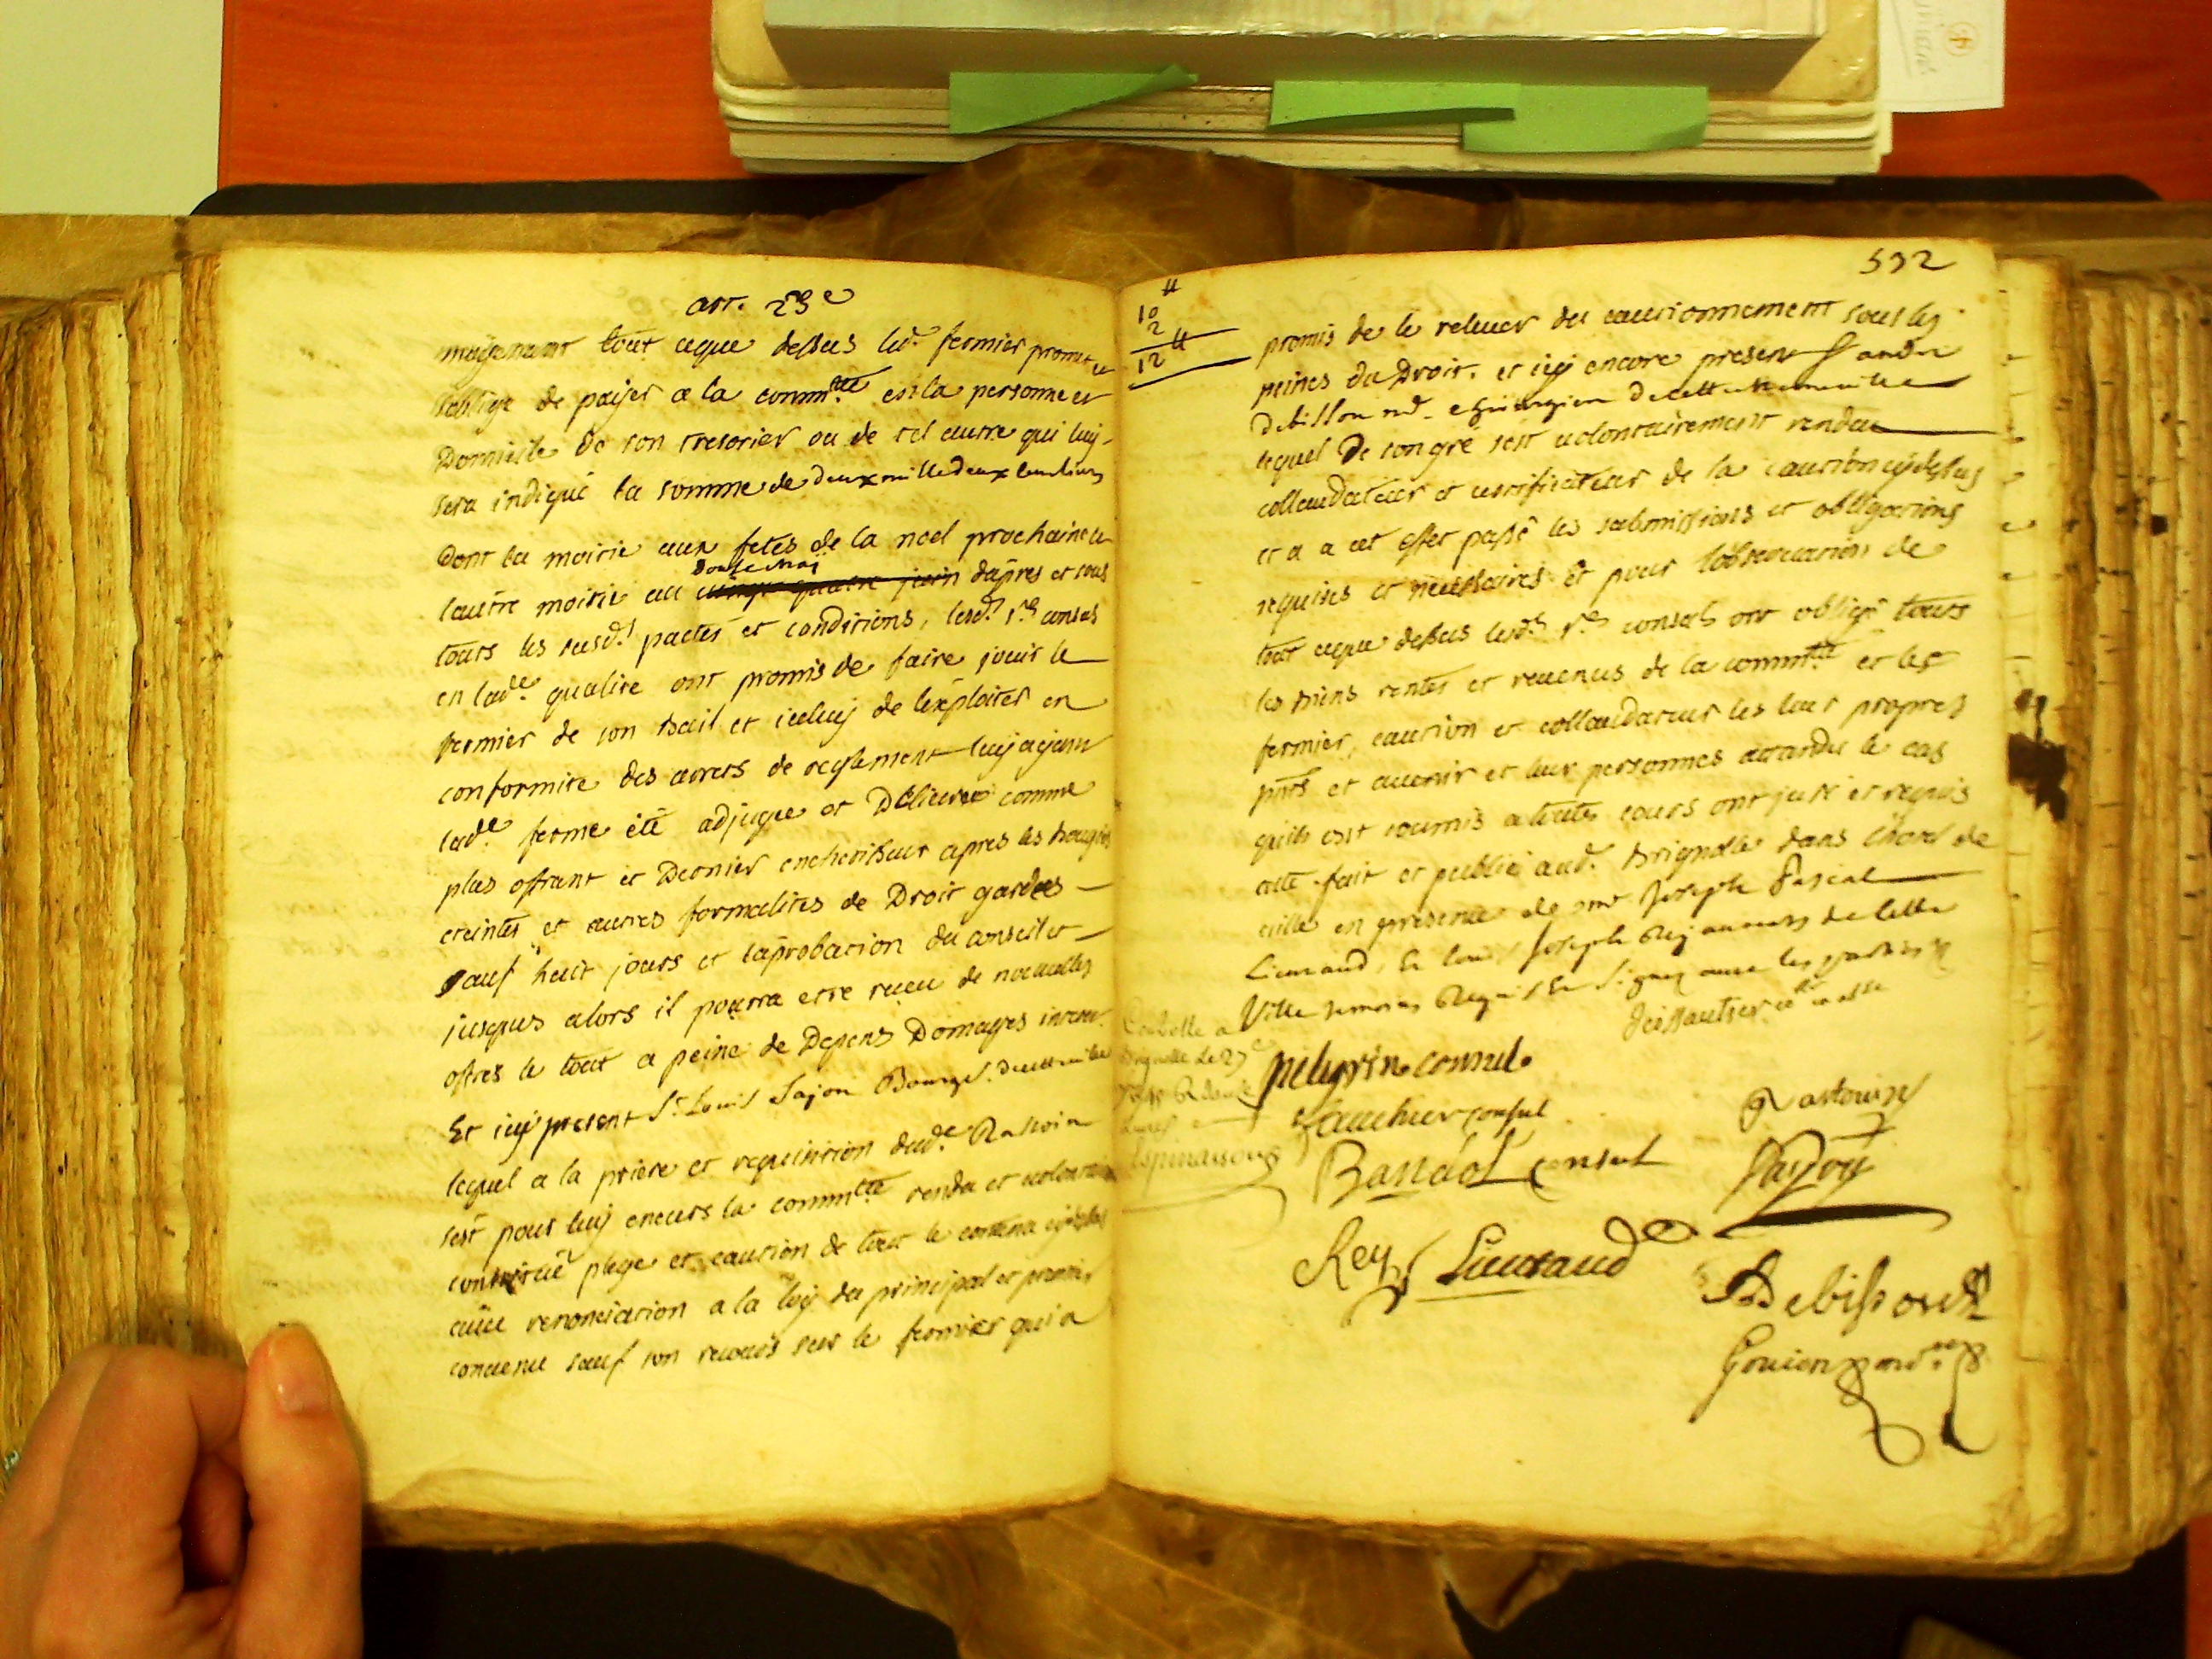 art. 23e
moyenant tout ceque dessus led.t fermier promet et
soblige de payer a la commté en la personne et
Domicile de son tresorier ou de tel autre qui luy
sera indiqué la somme de deux mille deux cent livres
Dont la moitié aux fetes de la noel prochaine et
douse may
lautre moitié au vingt quatre juin dapres et sous
tours les susd.t pactes et conditions, lesd.t srs consuls
en lad.e qualité ont promis de faire jouir le
fermier de son bail et iceluy de lexploiter en
conformité des arrets de reglement luy ayant
lad.e ferme été adjugée et Délivrée comme
plus offrant et Dernier encherisseur apres les bougies
eteintes et autres formalites de Droit gardées
sauf huit jours et laprobation du conseil et
jusques alors il pourra etre receu de nouvelles
ofres le tout a peine de Depens Domages interets
Et icy present Sr Louis Sajon Bourgs. de cette ville
lequel a la priere et requisition dud.t
sest pour luy envers la commté rendu et volontairem
constitué plege et caution de tout le contenu cydessus
avec renonciation a la loy du principal et premier
convenu sauf son recours sur le fermier qui a
532
10 #
2
12 #
promis de le relever du cautionnement sous les
peines du Droit. et icy encore present Sr andré
debisson md. chirurgien de cette ville
lequel de son gre sest volontairement rendu
collaudateur et certificateur de la caution cydessus
et a a cet effet passé les submissions et obligations
requises et necessaires Et pour lobservation de
tout ceque dessus lesd.s srs consuls ont obligé tours
les biens rentes et revenus de la commté et les
fermier, caution et collaudateur les leur propres
pnts et avenir et leur personnes attandu le cas
quils ont soumis a toutes cours ont juré et requis
acte fait et publié aud.t brignolle dans lhotel de
ville en presence de mr Joseph Pascal
Lieutaud, Et Louis Joseph Rey de cette
Ville temoins Requis Et Signez avec les parties
Controllé a
Brignolle Le 27e
pelegrin consul
Gauthier consul
Rastouin
Bassaol consul
Rey Lieutaud
Debisson
Goujon